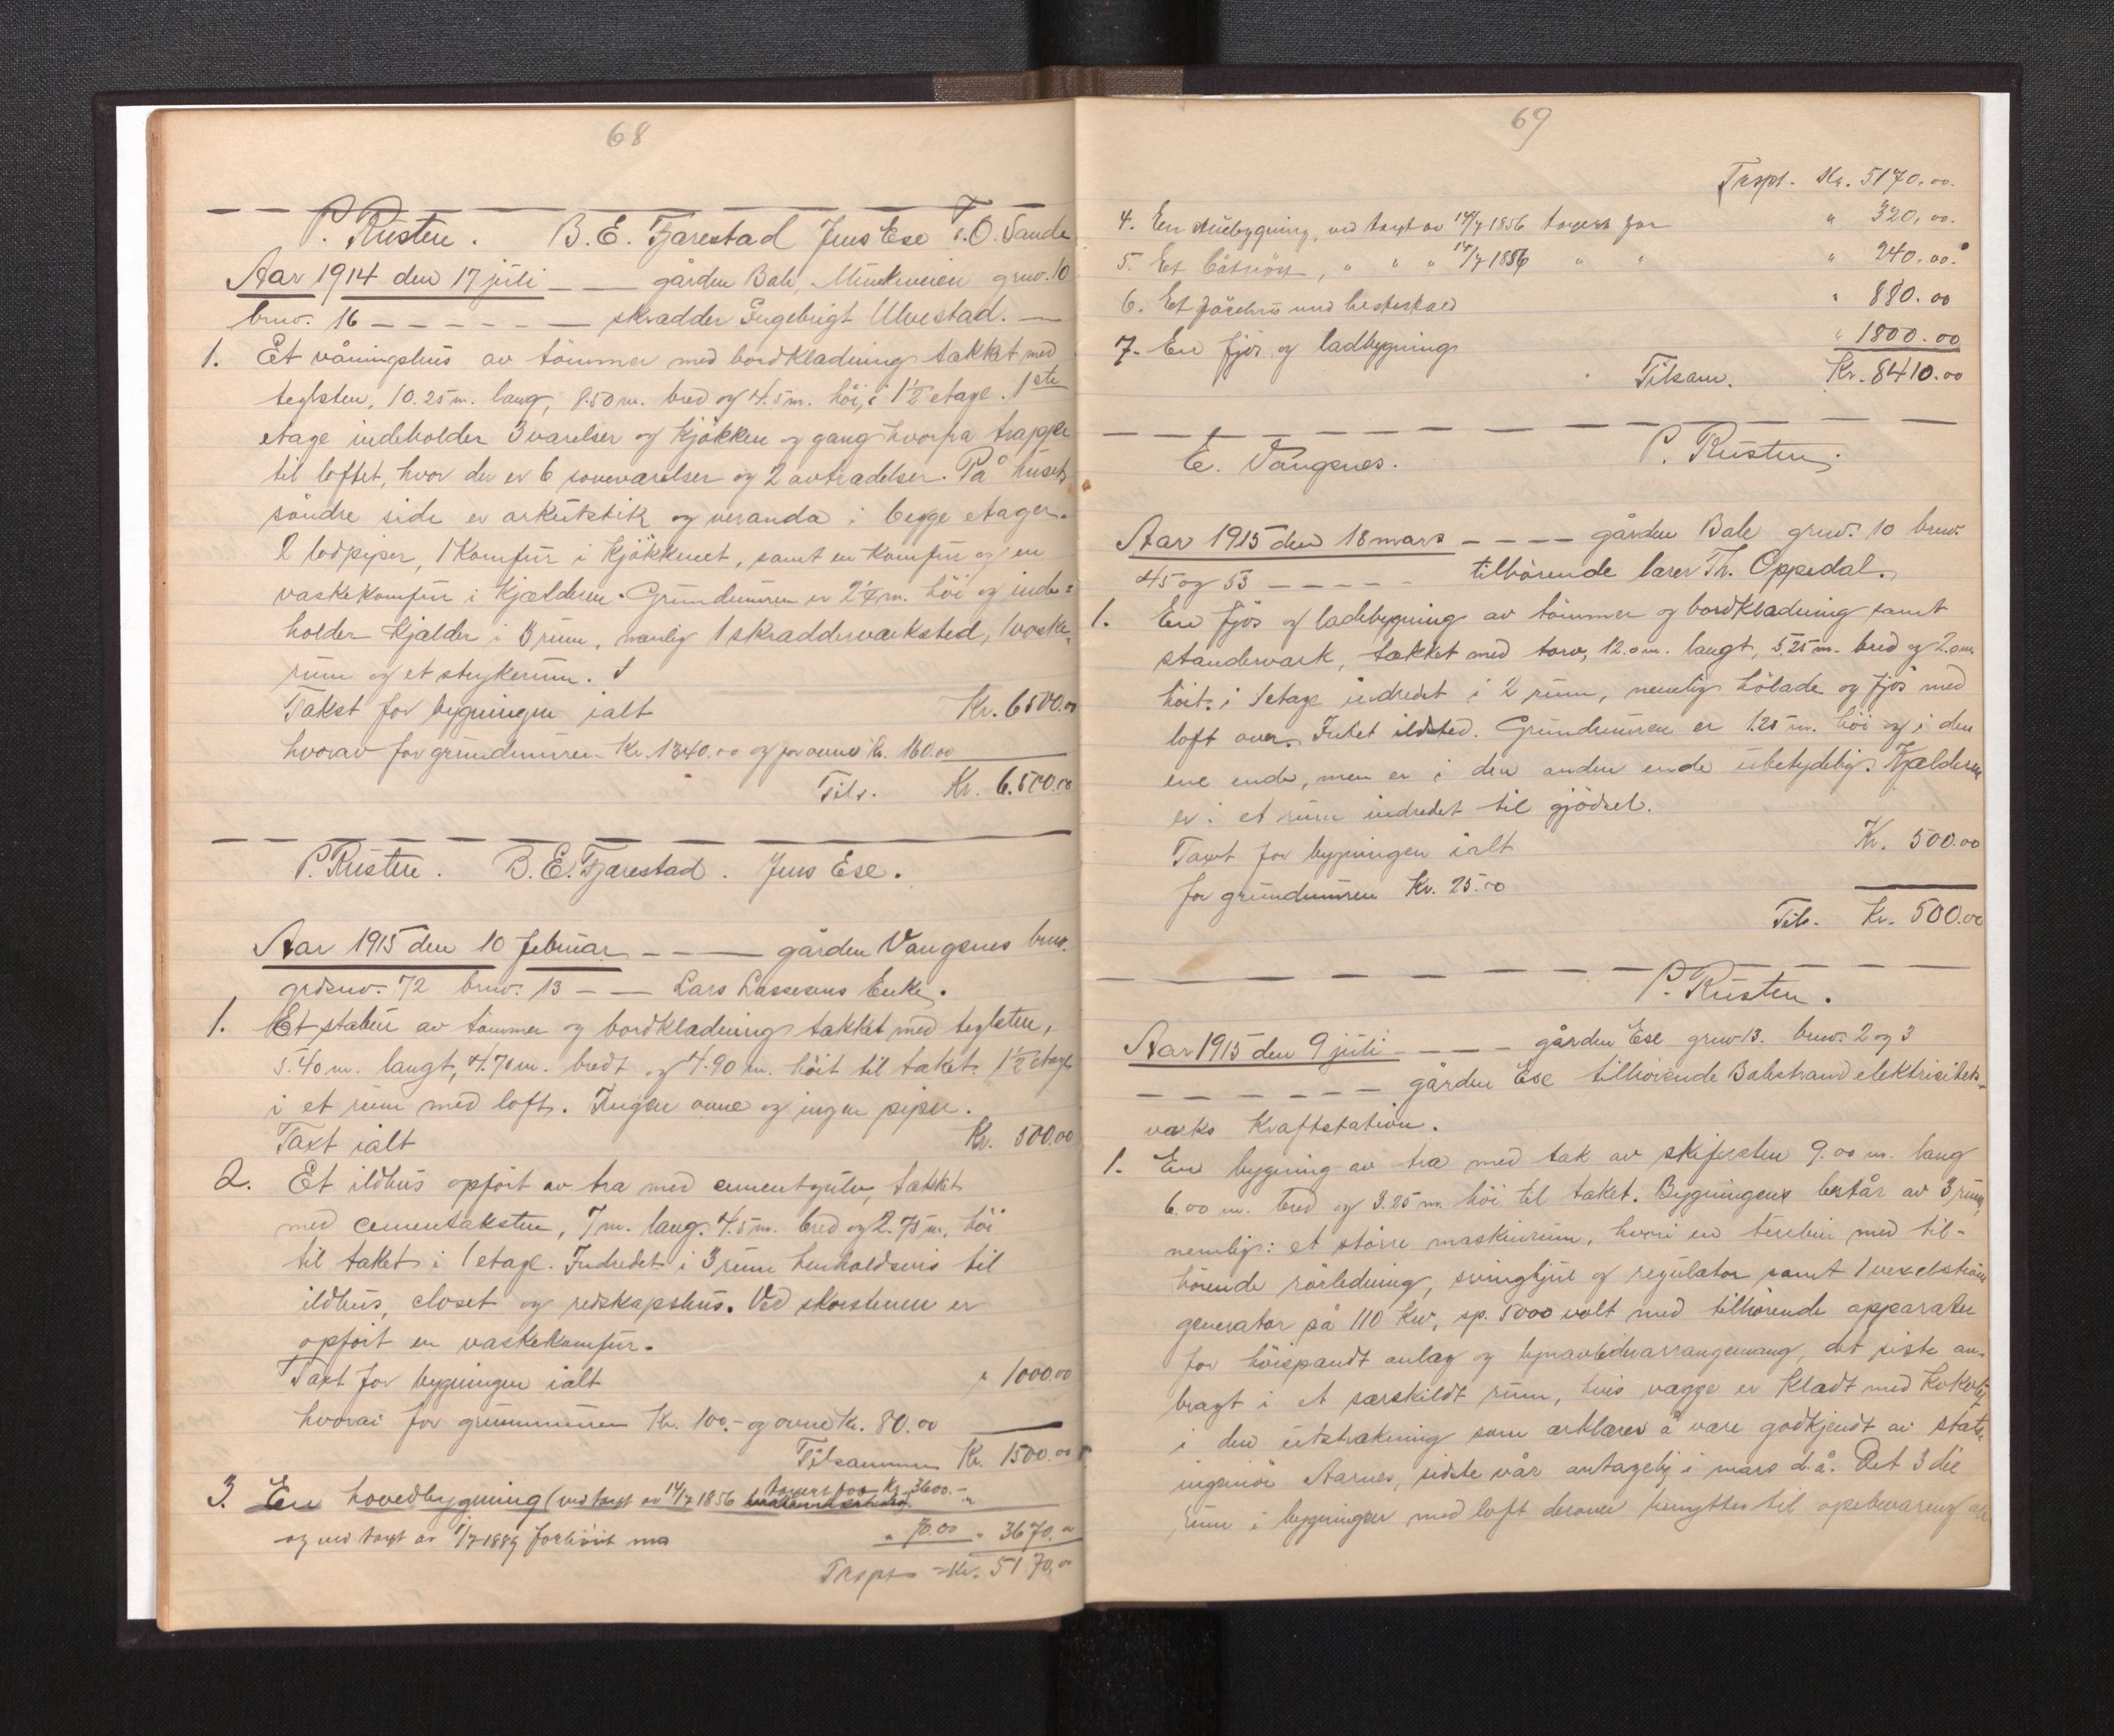 68
P. Risten. B. E. Tjarestad Jens Ese T. O. Sande
Aar 1914 den 17 juli — — gården Bale, grnv. 10
brnv. 16 — — — — — skradder Ingebrigt Ulvestad. —
1. Et våningshus av tömmer med bordkladning takket med
teglsten, 10.25 m. lang, 8.50 m. bred og 4.5 m. höi, i 1½ etage. 1ste
etage indeholder 3 varelser og kjökken og gang hvorfra trappe
til loftet, hvor der er 6 sovevarelser og 2 avtradelser. På husets
söndre side er arkutstik og veranda i begge etager.
2 lodpiper, 1 Komfur i Kjökkenet, samt en komfur og en
vaskekomfur i Kjælderen. Grundmuren er 2¼ m. höi og inde=
holder Kjælder i 3 rum, namlig 1 skraddervarksted, 1 vaske=
rum og et strykerum.
Takst for bygningen ialt Kr. 6500.00
hvorav for grundmuren Kr. 1340.00 og for ovne Kr. 160.00
Tils. Kr. 6.500.00
P. Risten. B. E. Tjarestad. Jens Ese.
Aar 1915 den 10 februar — — — gården Vangsnes brnv.
grdsnv. 72 brnv. 13 — — Lars Lassesens Enke.
1. Et stabur av tömmer og bordkladning takket med teglsten,
5.40 m. langt, 4.70 m. bredt og 4.90 m. höit til taket. 1½ etage
i et rum med loft. Ingen ovne og ingen piper.
Taxt ialt Kr. 500.00
2. Et ildhus opfört av tra med cementgulv, takket
med cementaksten, 7 m. lang. 4.5 m. bred og 2.75 m. höi
til taket i 1 etage. Indredet i 3 rum henholdsvis til
ildhus, closet og redskapshus. Ved skorstenen er
opfört en vaskekomfur.
Taxt for bygningen ialt " 1000.00
hvorav for grunmuren Kr. 100.- og ovne Kr. 80.00
Tilsammen Kr. 1500.00
3. En hovedbygning (ved taxt av 14/7 1856 taxert for Kr. 3600.-
og ved taxt av 1/7 1889 forhöiet med " 70.00 " 3670.00
Trspt = Kr. 5170.00
69
Trspt. Kr. 5170.00.
4. En stuebygning, ved taxt av 14/7 1856 taxert for " 320,00.
5. Et båtnöst, " " " 14/7 1856 " " " 240.00.
6. Et fårehus med hestestald " 880.00
7. En fjös og ladbygning " 1800.00
Tilsam. Kr. 8410.00
E. Vangsnes. P. Risten.
Aar 1915 den 18 mars — — — — gården Bale grnv. 10 brnv.
45 og 53 — — — — — tilhörende larer Th. Oppedal.
1. En fjös og ladebygning av tömmer og bordkladning samt
standervark, takket med torv, 12.0 m. langt, 5.25 m. bred og 2.0 m.
höit. i 1 etage indredet i 2 rum, nemlig hölade og fjös med
loft over. Intet ildsted. Grundmuren er 1.25 m. höi og i den
ene ende, men er i den anden ende ubetydelig. Kjælderen
er i et rum indredet til gjödsel.
Taxt for bygningen ialt Kr. 500.00
for grundmuren Kr. 25.00
Tils. Kr. 500.00
P. Risten.
Aar 1915 den 9 juli — — — — gården Ese grnv 13. brnv. 2 og 3
— — — — — — gården Ese tilhörende Balestrand elektrisitets-
varks Kraftstation.
1. En bygning av tra med tak av skifersten 9.00 m. lang
6.00 m. bred og 3.25 m. höi til taket. Bygningens består av 3 rum,
nemlig: et större maskinrum, hvori en turbin med til-
hörende rörledning, svinghjul og regulator samt 1 vexelström
generator på 110 Kw, sp. 5000 volt med tilhörende apparater
for höispandt anlag og lynavlederarrangemang, det siste an-
bragt i et sarskildt rum, hvis vagge er kladt med
i den utstrakning som arklares å vare godkjendt av stats-
ingeniör Aarnes, sidste vår antagelig i mars d.å. Det 3die
rum i bygningen med loft derover benyttes til opbevaring av